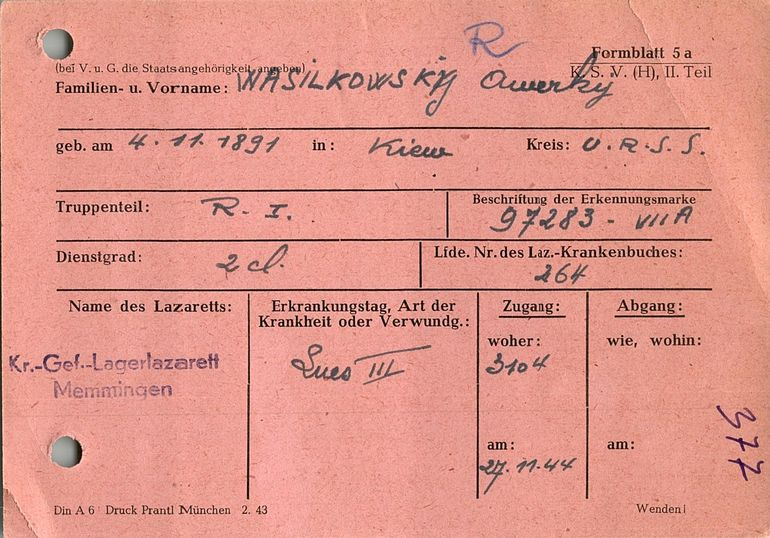 R
Formblatt 5 a
K. S. V. (H), II. Teil
(bei V. u. G. die Staatsangehörigkeit angeben)
Familien- u. Vorname: WASILKOWSKY Awerky
geb. am 4. 11. 1891 in: Kiew Kreis: U. R. S. S.
Truppenteil: R. I. Beschriftung der Erkennungsmarke
97283 - VII A
Dienstgrad: 2 cl. Lfde. Nr. des Laz.-Krankenbuches:
264
Name des Lazaretts: Erkrankungstag, Art der Krankheit oder Verwundg.: Zugang: Abgang:
woher: wie, wohin:
Kr.-Gef.-Lagerlazarett
Memmingen
Lues III
3104
377
am: am:
27. 11. 44
Din A 6 Druck Prantl München 2. 43 Wenden!